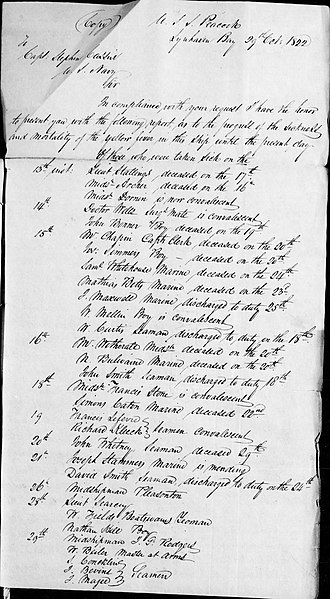 (Copy) U.S.S. Peacock
Lynhaven Bay 29th Oct. 1822
To
Capt Stephen Cassin
U.S. Navy
Sir
In compliance with your request I have the honor
to present you with the following report, as to the progress of the sickness
and mortality of the yellow fever in this Ship until the present day
Of those who were taken sick on the
13th inst. Lieut Stallings deceased on the 17th
Midsn Locher deceased on the 16th
Midsn is now convalescent
14th Doctor Wells Surgs Mate is convalescent
John Boy deceased on the 19th
15th Mr Chapin Capts Clerk deceased on the 20th
Jos. Simmers Boy — deceased on the 20th
Saml Whitehouse Marine deceased on the 21st
Mathias Marine deceased on the 23d
J. Maxwell Marine discharged to duty 25th
W Millin Boy is convalescent
W Curtis Seaman discharged to duty on the 18th
16th W Motherall Midsn deceased on the 20th
N Marine deceased on the 20th
John Smith Seaman discharged to duty 18th
18th Midsn Francis Stone is convalescent
Simons Eaton Marine deceased 22nd
19 Francis Lefevre
Richard Seamen convalescent
20th John Whitney Seaman deceased 27th
21st Joseph Marine is mending
David Smith Seaman, discharged to duty on the 24th
26th Midshipman Pleasonton
28th Lieut Searcy
W. Fields Boatswains Yeoman
Nathan Hill Boy
29th Midshipman Rodgers
W. Master at Arms
J Conckling
J. Bevins Seamen
J Major